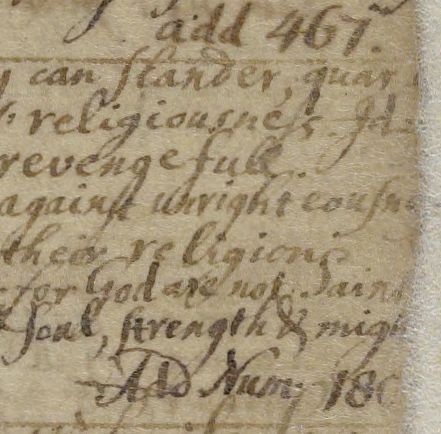 add 467.
can slander, quar
religiousness. Id
revengefull.
against unrighteousne
their religion
for God are not Saint
Soul, strength & migh
Add Num: 180